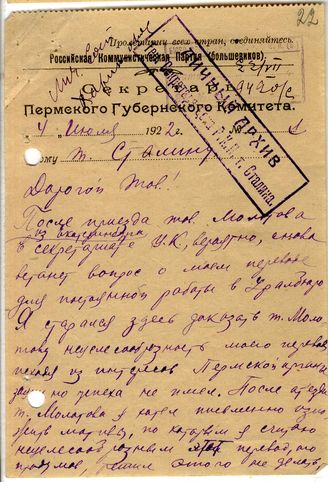 22
Пролетарии всех стран, соединяйтесь.
Российская Коммунистическая Партия (большевиков).
Секретарь
Пермского Губернского Комитета.
4 Июля 1922 г. №
Кому т. Сталину
Личный Архив
т. Сталина.
Дорогой тов!
После приезда тов. Молотова
из Екатеринбурга
в секретариате ЦК, вероятно, снова
встанет вопрос о моем переводе
для постоянной работы в Уралбюро
Я старался здесь доказать т. Моло-
тову нецелесообразность моего перевода
исходя из интересов Пермской организа-
ции но успеха не имел. После отъезда
т. Молотова я хотел письменно изло-
жить мотивы, по которым я считаю
нецелесообразным этот перевод, но
решил этого не делать,